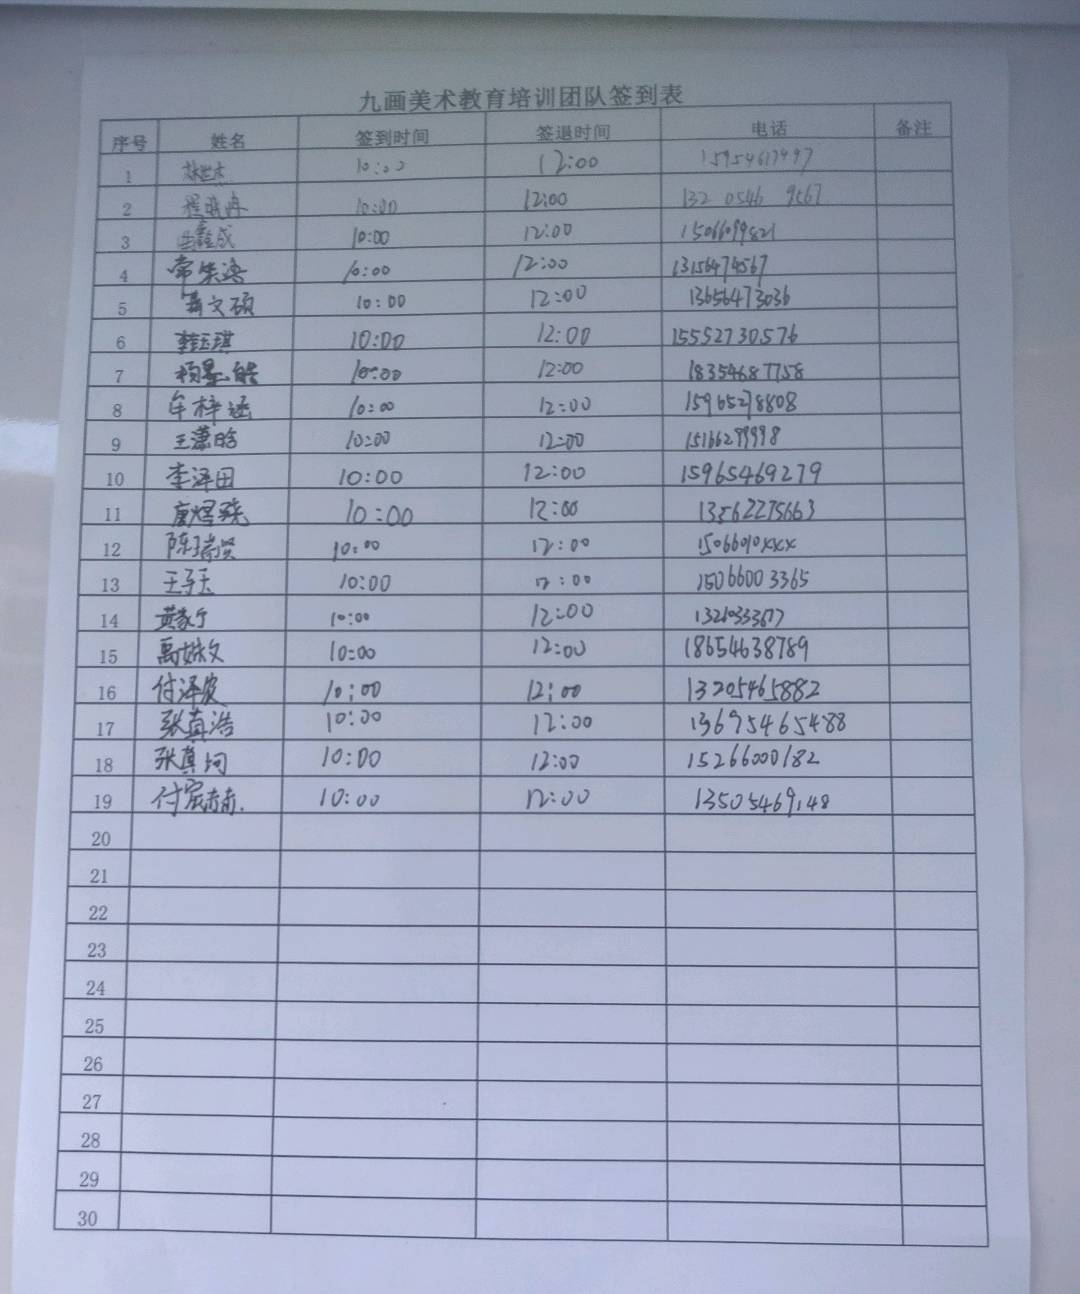 九画美术教育培训团队签到表
序号 姓名 签到时间 签退时间 电话 备注
1 林世杰 10:00 12:00 15954617997
2 程晓冉 10:00 12:00 132 0546 9567
3 鑫成 10:00 12:00 15066099821
4 常 10:00 12:00 13156474567
5 文硕 10:00 12:00 13656473036
6 李玉琪 10:00 12:00 15552730576
7 杨墨皓 10:00 12:00 18354687758
8 牟梓涵 10:00 12:00 15965278808
9 王潇晗 10:00 12:00 15166299998
10 李泽田 10:00 12:00 15965469279
11 唐煜 10:00 12:00 13562275663
12 陈瑞贤 10:00 12:00 15066010xxx
13 王子玉 10:00 12:00 15066003365
14 黄家宁 10:00 12:00
15 禹姝文 10:00 12:00 18654638789
16 付泽宸 10:00 12:00 13205465882
17 张真浩 10:00 12:00 13695465488
18 张真珂 10:00 12:00 15266000182
19 付宸赫 10:00 12:00 13505469148
20
21
22
23
24
25
26
27
28
29
30